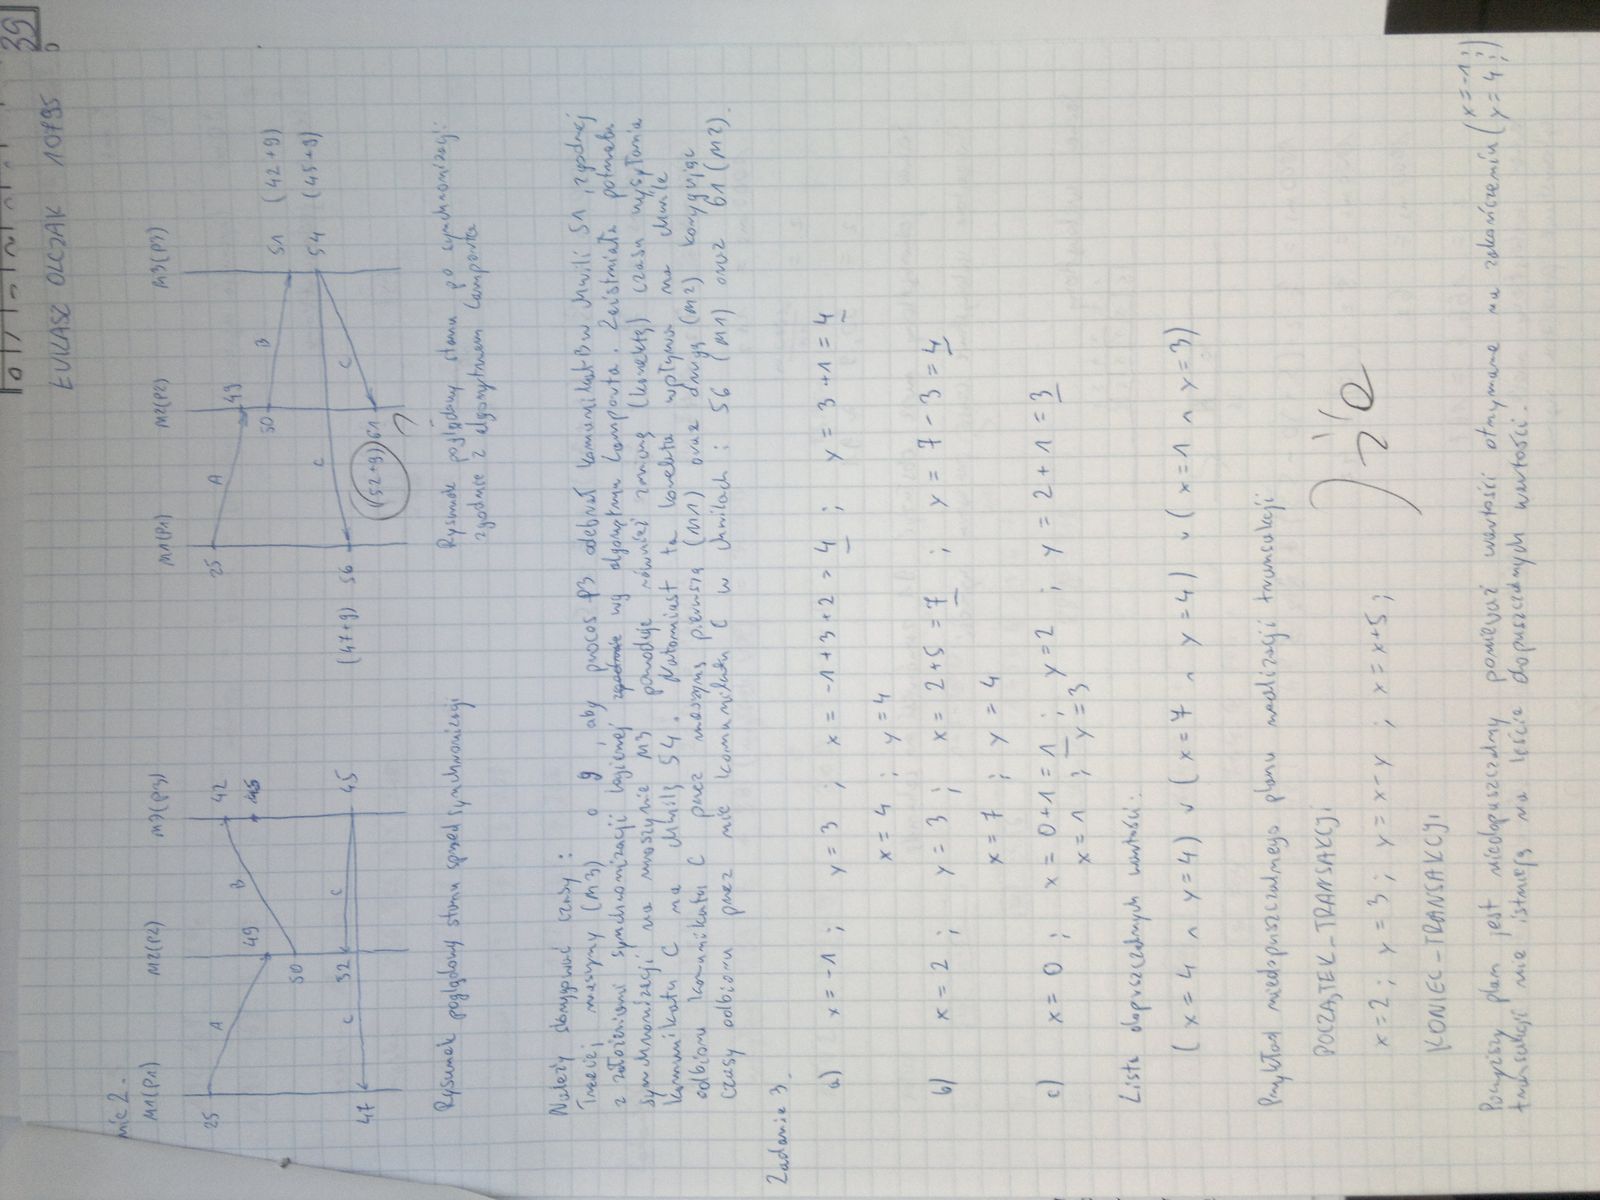 39
ŁUKASZ OLCZAK 10795
nie 2.
M1(P1) M2(P2) M3(P3)
25 A 49 B 42
45
50
52 C 45
47 C
M1(P1) M2(P2) M3(P3)
25 A 49
50 B 51 (42+9)
C 54 (45+9)
(47+9) 56 C
(52+9) 61
?
Rysunek poglądowy stanu sprzed synchronizacji
Rysunek poglądowy stanu po synchronizacji
zgodnie z algorytmem Lamporta
Należy skorygować czasy :
Trzeciej maszyny (M3) o 9, aby proces P3 odebrał komunikat B w chwili 51, zgodnej
z założeniami synchronizacji logicznej zgodnie wg algorytmu Lamporta. Zaistniała potrzeba
synchronizacji na maszynie M3 powoduje również zmianę (korektę) czasu wysyłania
komunikatu C na chwilę 54. Natomiast ta korekta wpływa na chwile
odbioru komunikatu C przez maszynę pierwszą (M1) oraz drugą (M2) korygując
czasy odbioru przez nie komunikatu C w chwilach : 56 (M1) oraz 61 (M2).
Zadanie 3.
a) x = -1 ; y = 3 ; x = -1 + 3 + 2 = 4 ; y = 3 + 1 = 4
x = 4 ; y = 4
b) x = 2 ; y = 3 ; x = 2 + 5 = 7 ; y = 7 - 3 = 4
x = 7 ; y = 4
c) x = 0 ; x = 0 + 1 = 1 ; y = 2 ; y = 2 + 1 = 3
x = 1 ; y = 3
Lista dopuszczalnych wartości:
(x = 4 ∧ y = 4) ∨ (x = 7 ∧ y = 4) ∨ (x = 1 ∧ y = 3)
Przykład niedopuszczalnego planu realizacji transakcji
POCZĄTEK_TRANSAKCJI
x = 2 ; y = 3 ; y = x - y ; x = x + 5 ;
KONIEC_TRANSAKCJI
źle
Powyższy plan jest niedopuszczalny ponieważ wartości otrzymane na zakończeniu (x = -1 ; y = 4 ;)
transakcji nie istnieją na liście dopuszczalnych wartości.